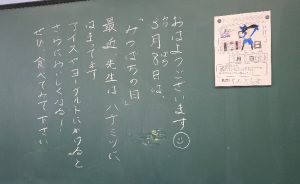 おはようございます
3月8日は、
みつばち
「みつばちの日」
最近、先生は ハチミツに
はまってます
アイスやヨーグルトにかけると
さらにおいしくなる!
ぜひ、食べてみて下さい